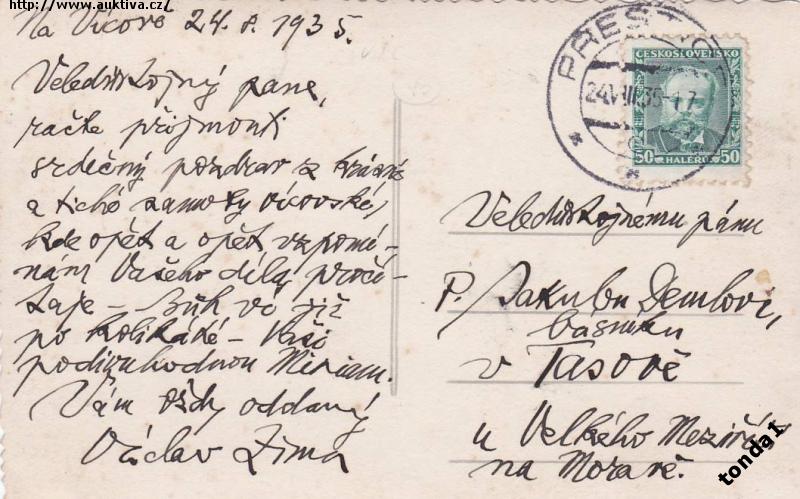 http://www.auktiva.cz/
Na Vícově 24. 8. 1935.
Veledůstojný pane,
račte přijmouti
srdečný pozdrav z krásné
a tiché samoty vícovské,
kde opět a opět vzpomí-
nám Vašeho díla, pročí-
taje – Bůh ví již
po kolikáté – Vaši
podivuhodnou Miriam.
Vám vždy oddaný
Václav Zima
PŘEŠTICE
24.VIII.35-17
ČESKOSLOVENSKO
50 HALÉŘŮ 50
Veledůstojnému pánu
P. Jakubu Demlovi,
básníku
v Tasově
u Velkého Meziříčí
na Moravě.
tonda1